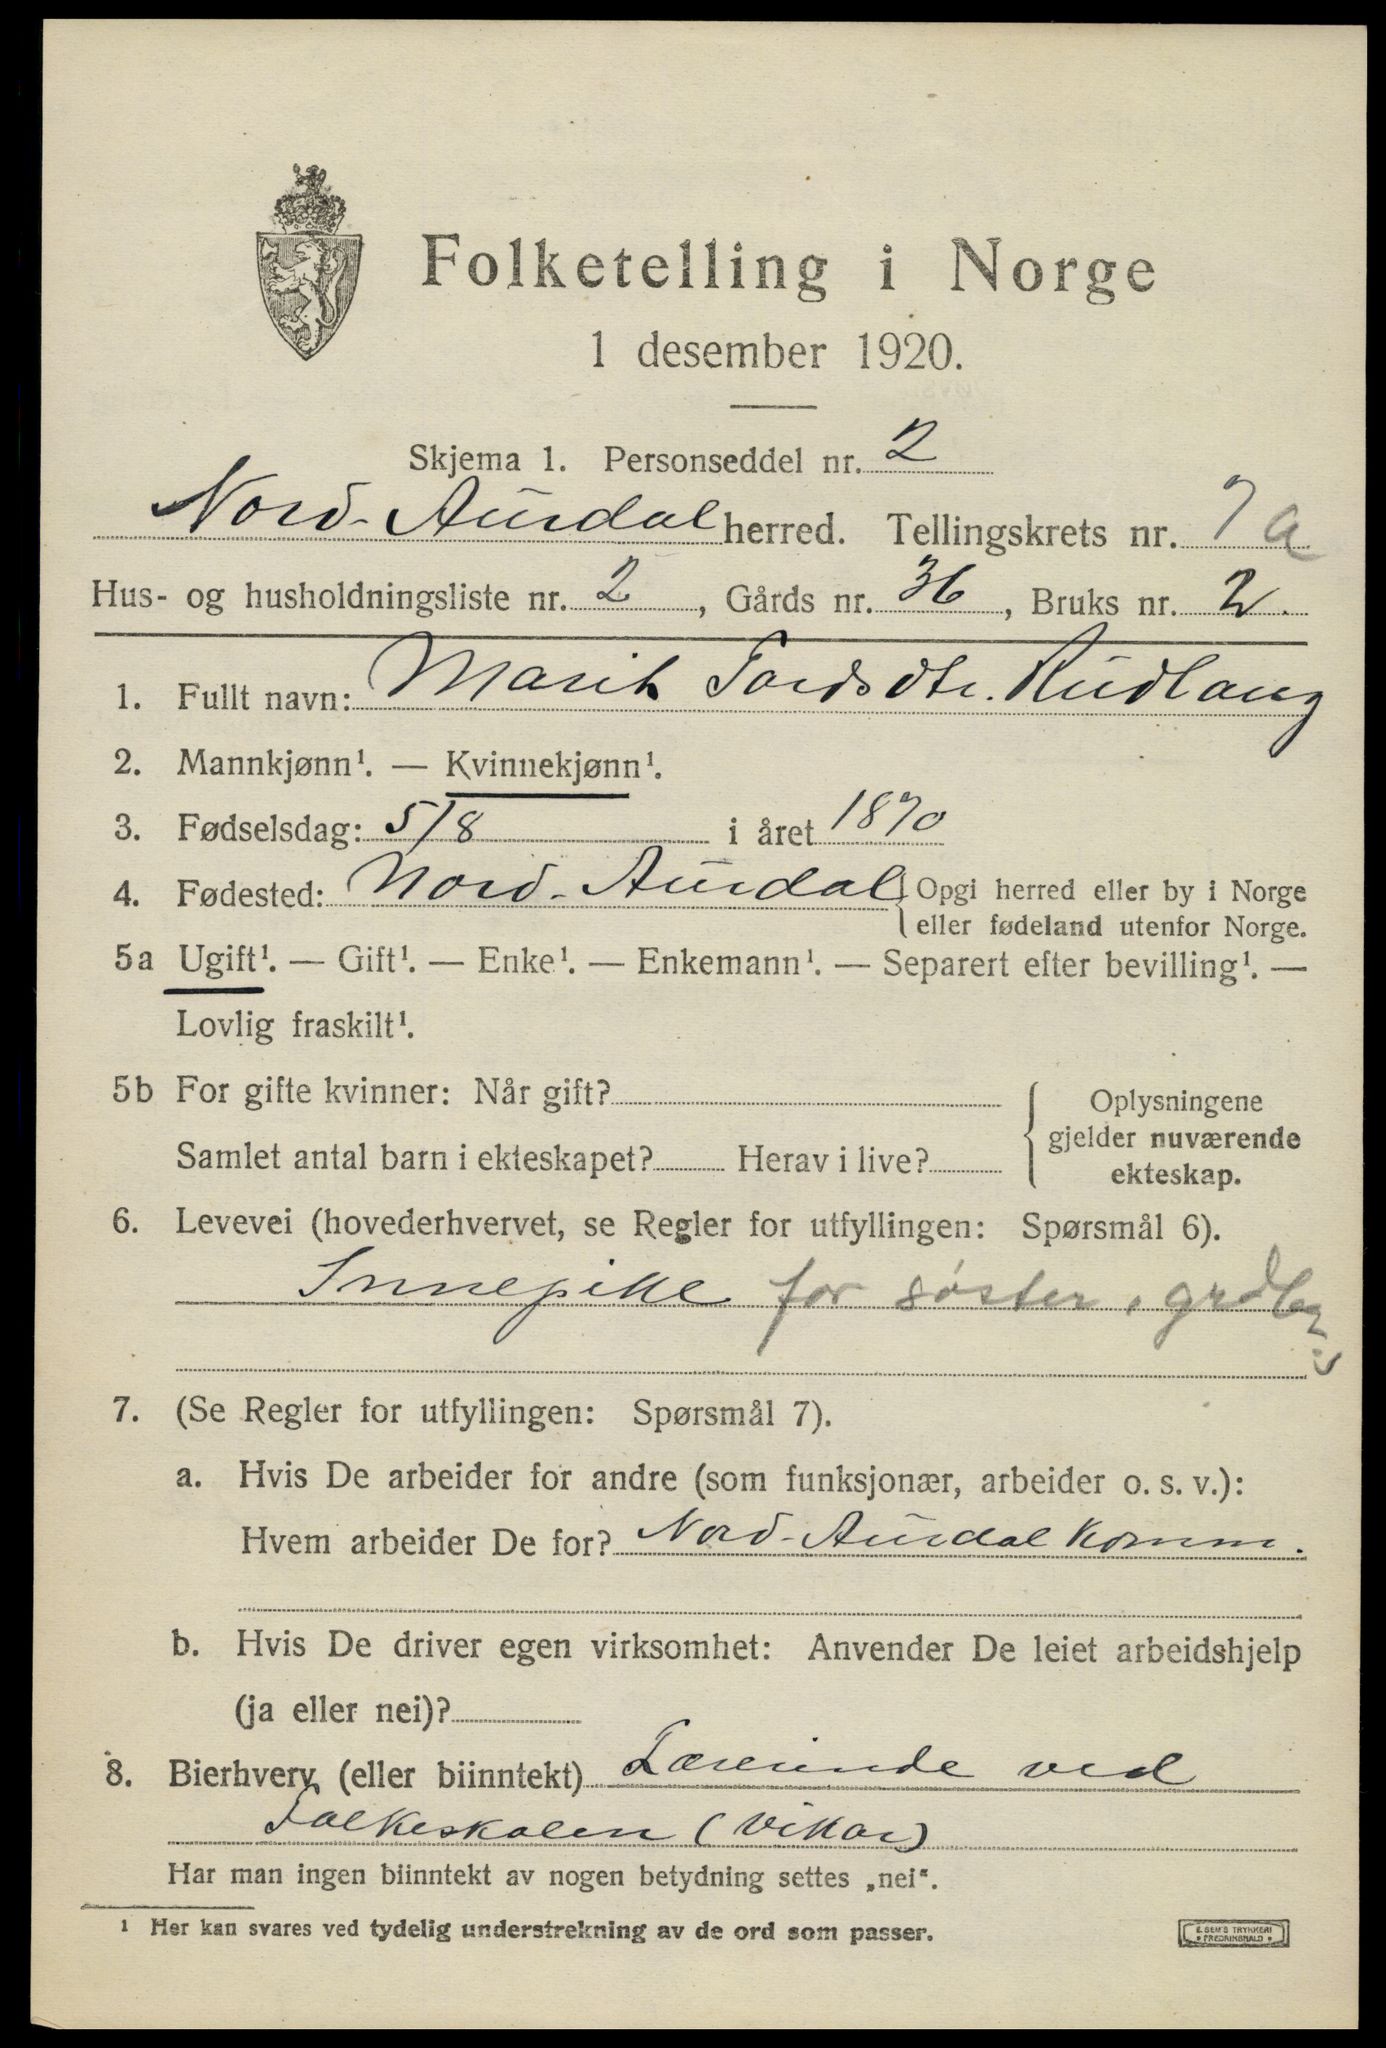 Folketelling i Norge
1 desember 1920.
Skjema 1. Personseddel nr. 2
Nord-Aurdal herred. Tellingskrets nr. 7a
Hus- og husholdningsliste nr. 2, Gårds nr. 36, Bruks nr. 2.
1. Fullt navn: Marit Tordsdtr. Rudlang
2. Mannkjønn¹. — Kvinnekjønn¹.
3. Fødselsdag: 5/8 i året 1870
4. Fødested: Nord-Aurdal { Opgi herred eller by i Norge
eller fødeland utenfor Norge.
5a Ugift¹. — Gift¹. — Enke¹. — Enkemann¹. — Separert efter bevilling¹. —
Lovlig fraskilt¹.
5b For gifte kvinner: Når gift?
Samlet antal barn i ekteskapet? Herav i live?
{ Oplysningene
gjelder nuværende
ekteskap.
6. Levevei (hovederhvervet, se Regler for utfyllingen: Spørsmål 6).
Innepike for søster,
7. (Se Regler for utfyllingen: Spørsmål 7).
a. Hvis De arbeider for andre (som funksjonær, arbeider o. s. v.):
Hvem arbeider De for? Nord-Aurdal Komm.
b. Hvis De driver egen virksomhet: Anvender De leiet arbeidshjelp
(ja eller nei)?
8. Bierhverv (eller biinntekt) Lærerinde ved
Folkeskolen (Vikar)
Har man ingen biinntekt av nogen betydning settes „nei“.
¹ Her kan svares ved tydelig understrekning av de ord som passer.
E. SEM'S TRYKKERI
• FREDRIKSHALD •